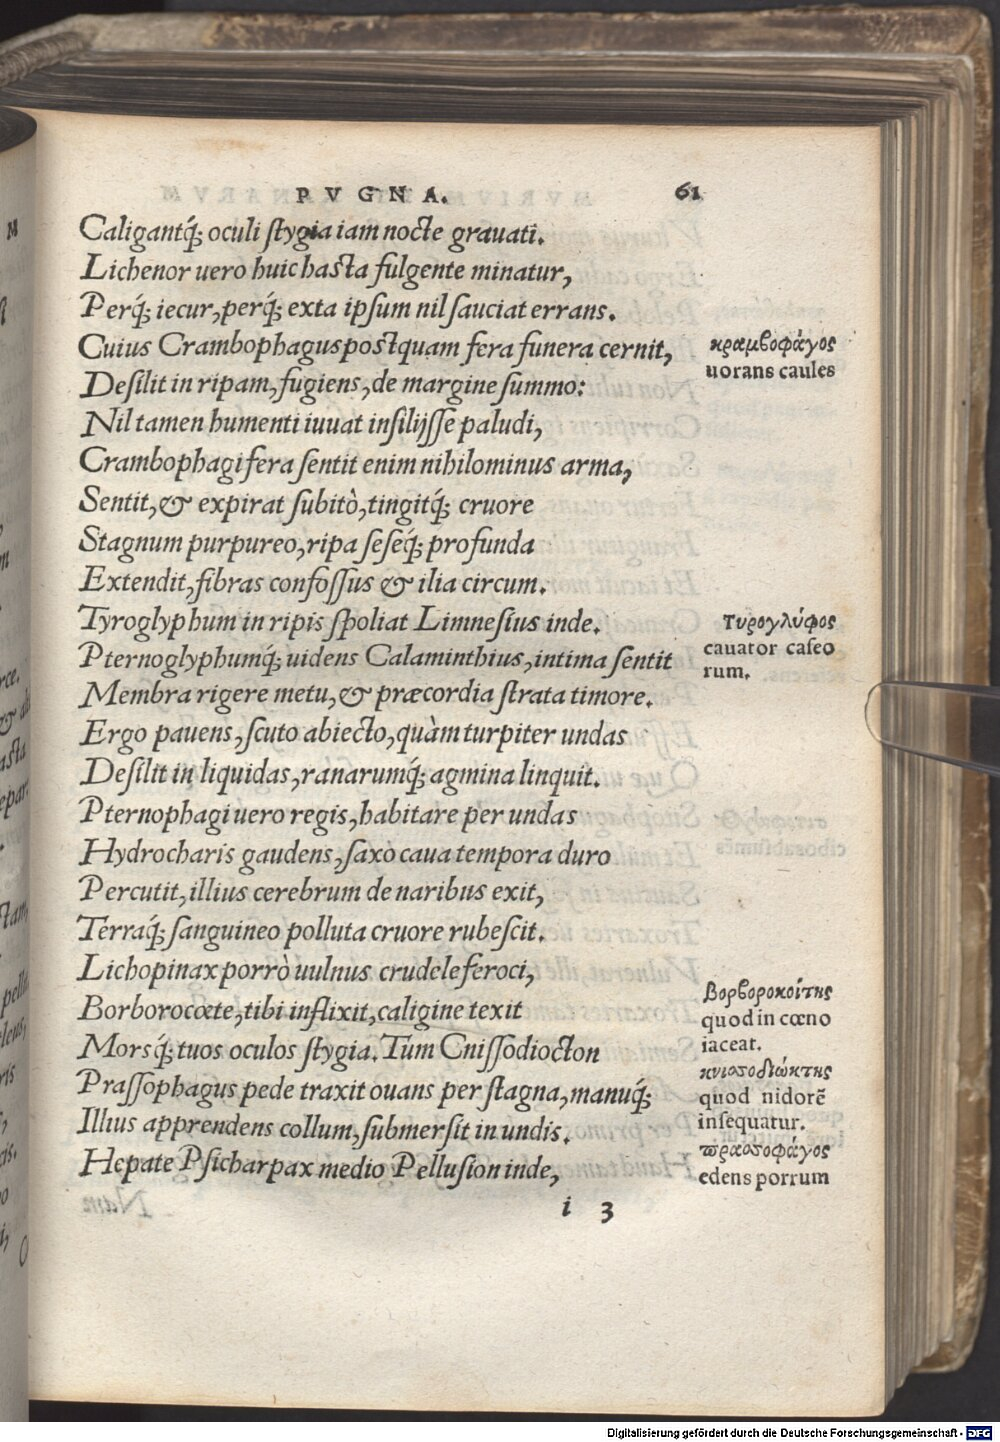 PVGNA. 61
Caligantq́; oculi stygia iam nocte grauati.
Lichenor uero huic hasta fulgente minatur,
Perq́; iecur, perq́; exta ipsum nil sauciat errans.
Cuius Crambophagus postquam fera funera cernit,
κραμβοφάγος
uorans caules
Desilit in ripam, fugiens, de margine summo:
Nil tamen humenti iuuat insilijsse paludi,
Crambophagi fera sentit enim nihilominus arma,
Sentit, & expirat subitò, tingitq́; cruore
Stagnum purpureo, ripa seseq́; profunda
Extendit, fibras confossus & ilia circum.
Tyroglyphum in ripis spoliat Limnesius inde.
Τυρογλύφος
cauator caseo
rum.
Pternoglyphumq́; uidens Calaminthius, intima sentit
Membra rigere metu, & præcordia strata timore.
Ergo pauens, scuto abiecto, quàm turpiter undas
Desilit in liquidas, ranarumq́; agmina linquit.
Pternophagi uero regis, habitare per undas
Hydrocharis gaudens, saxo caua tempora duro
Percutit, illius cerebrum de naribus exit,
Terraq́; sanguineo polluta cruore rubescit.
Lichopinax porrò uulnus crudele feroci,
Borborocœte, tibi inflixit, caligine texit
Βορβοροκοίτης
quod in cœno
iaceat.
Morsq́; tuos oculos stygia. Tum Cnissodiocton
κνισσοδιώκτης
quod nidorē
insequatur.
Prassophagus pede traxit ouans per stagna, manuq́;
Illius apprendens collum, submersit in undis.
πρασσοφάγος
edens porrum
Hepate Psicharpax medio Pellusion inde,
i 3
Digitalisierung gefördert durch die Deutsche Forschungsgemeinschaft - DFG